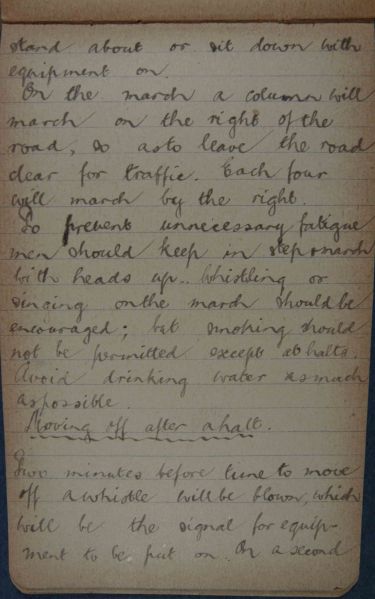 stand about or sit down with
equipment on.
On the march a column will
march on the right of the
road, so as to leave the road
clear for traffic. Each four
will march by the right.
To prevent unnecessary fatigue
men should keep in step & march
with heads up.. Whistling or
singing on the march should be
encouraged; but smoking should
not be permitted except at halts.
Avoid drinking water as much
as possible.
Moving off after a halt.
Two minutes before time to move
off a whistle will be blown, which
will be the signal for equip-
ment to be put on. On a second